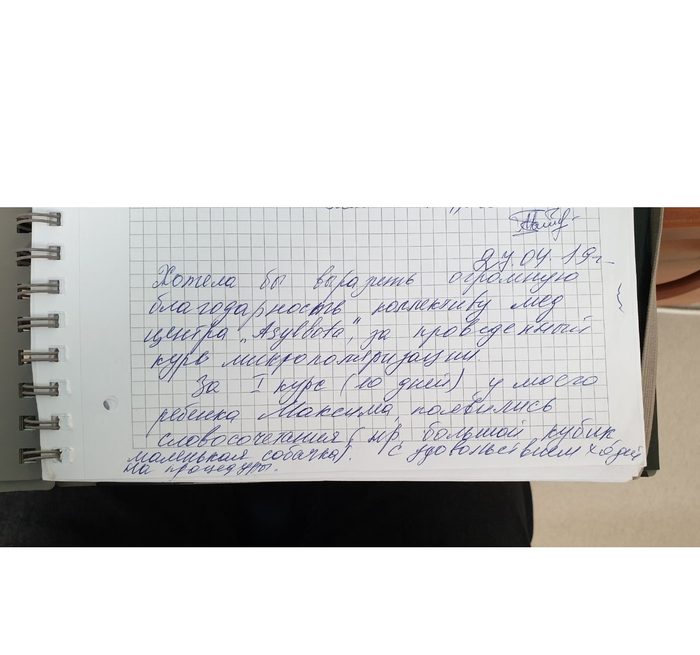 27.04.19г.
Хотела бы выразить огромную
благодарность коллективу мед
центра "Asylbota", за проведенный
курс микрополяризации
За I курс (10 дней) у моего
ребенка Максима появились
словосочетания (нр, большой кубик
маленькая собачка). С удовольствием ходил
на процедуры.